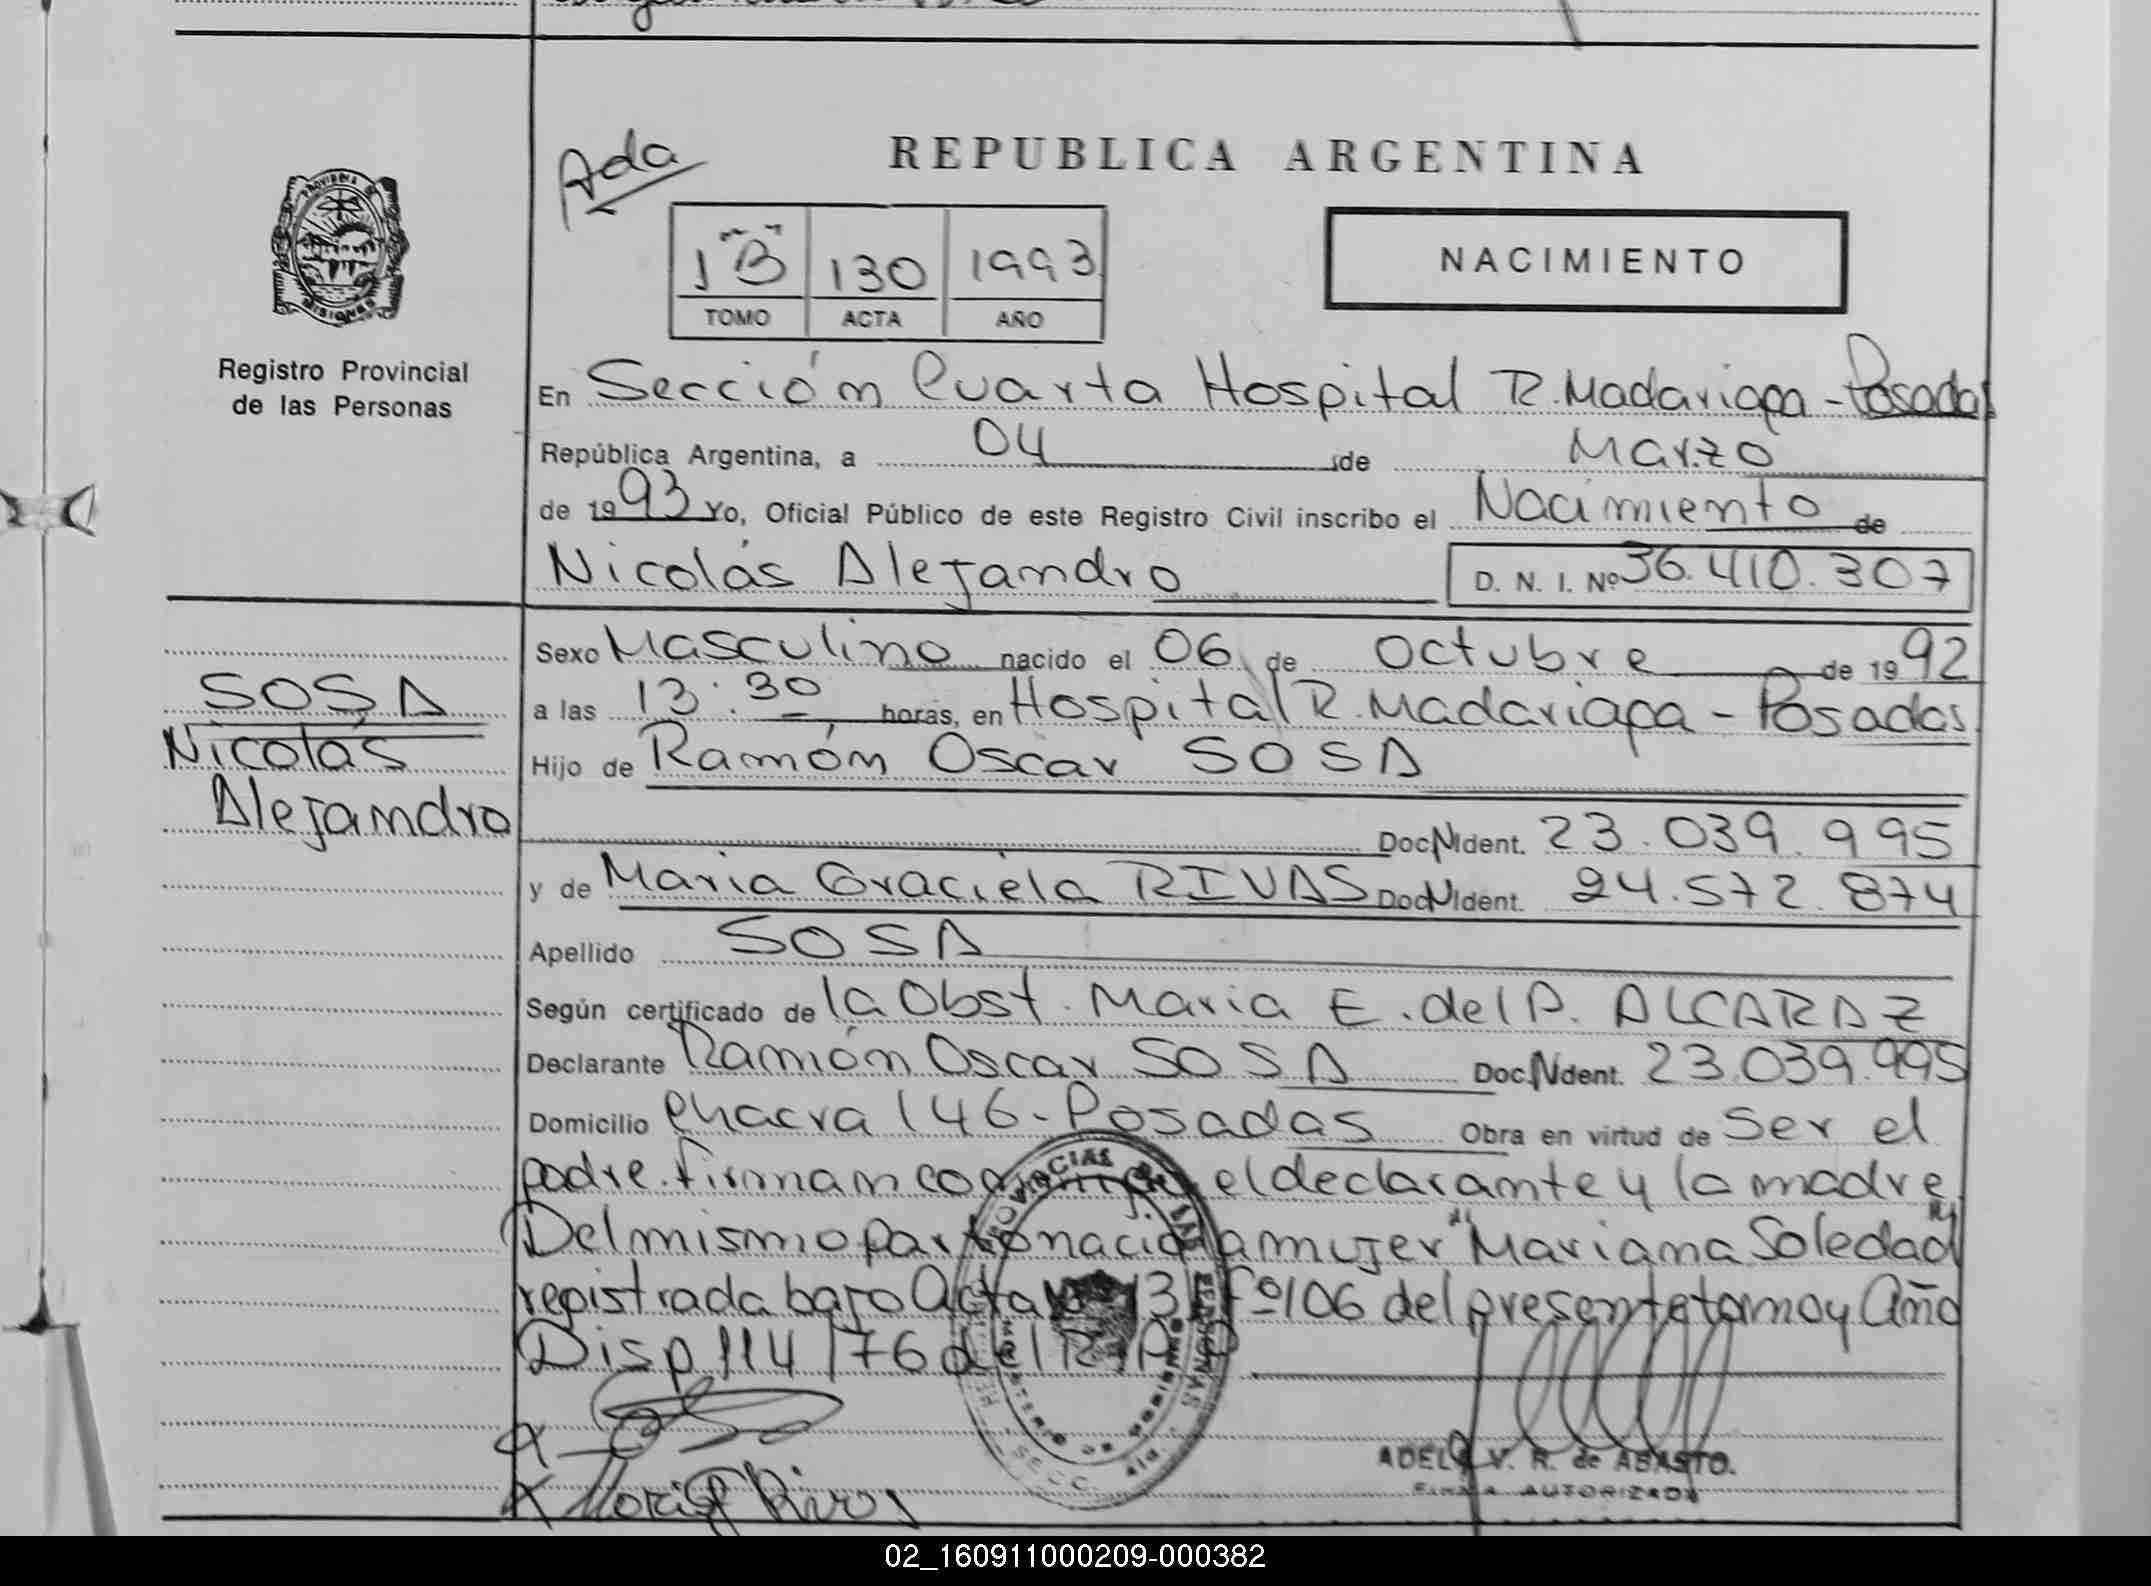 Ada
REPUBLICA ARGENTINA
1 "B" 130 1993
TOMO ACTA AÑO
NACIMIENTO
PROVINCIA
MISIONES
Registro Provincial
de las Personas
En Sección Cuarta Hospital R. Madariaga - Posadas
República Argentina, a 04 de Marzo
de 1993 Yo, Oficial Público de este Registro Civil inscribo el Nacimiento de
Nicolás Alejandro D. N. I. Nº 36.410.307
Sexo Masculino nacido el 06 de Octubre de 1992
a las 13:30 horas, en Hospital R. Madariaga - Posadas
Hijo de Ramón Oscar SOSA
Doc N Ident. 23.039.995
y de Maria Graciela RIVAS Doc N Ident. 24.572.874
Apellido SOSA
Según certificado de la Obst. Maria E. del P. ALCARAZ
Declarante Ramón Oscar SOSA Doc. N Ident. 23.039.995
Domicilio Chacra 146 - Posadas Obra en virtud de Ser el
padre. firman conmigo el declarante y la madre
Del mismo parto nació la mujer "Mariana Soledad"
registrada bajo Acta Fº 106 del presente tomo y Año
Disp 114/76 del R.P.P
SOSA
Nicolás
Alejandro
Maria G Rivas
ADELA V. R. de ABASTO.
FIRMA AUTORIZADA
02_160911000209-000382